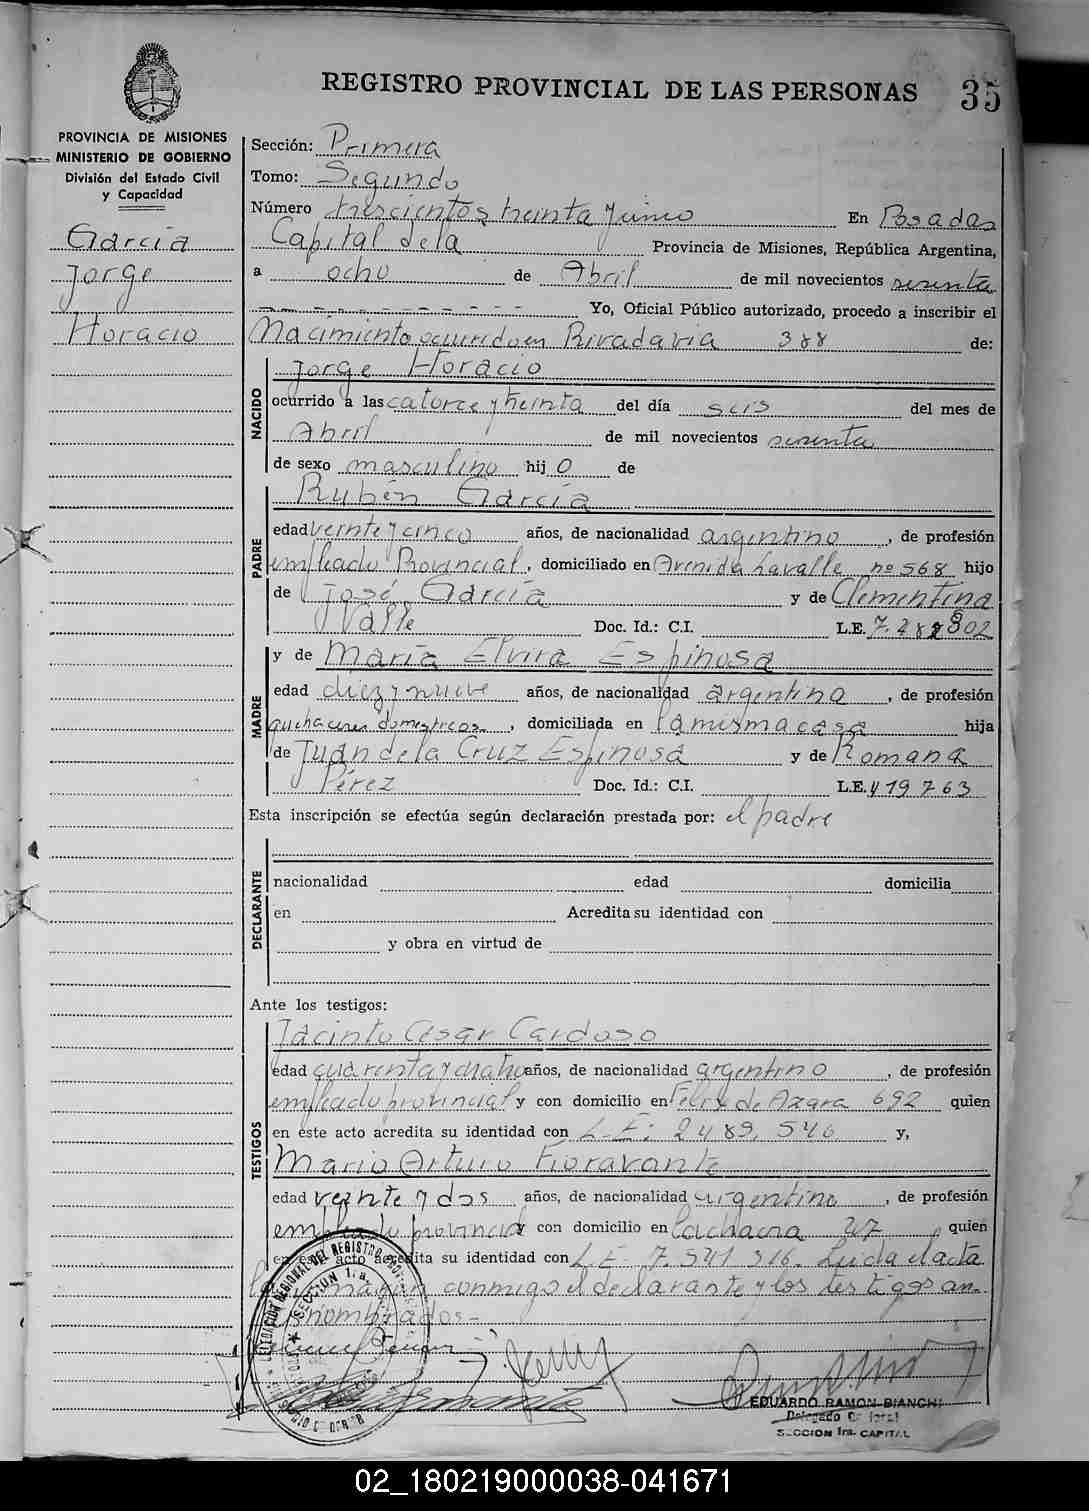 REGISTRO PROVINCIAL DE LAS PERSONAS
35
PROVINCIA DE MISIONES
MINISTERIO DE GOBIERNO
División del Estado Civil
y Capacidad
García
Jorge
Horacio
Sección: Primera
Tomo: Segundo
Número trescientos treinta y cinco En Posadas
Capital de la Provincia de Misiones, República Argentina,
a ocho de Abril de mil novecientos sesenta
Yo, Oficial Público autorizado, procedo a inscribir el
Nacimiento ocurrido en Rivadavia 388 de:
Jorge Horacio
NACIDO
ocurrido a las catorce y treinta del día seis del mes de
Abril de mil novecientos sesenta
de sexo masculino hijo de
Rubén García
PADRE
edad veinte y cinco años, de nacionalidad argentino, de profesión
empleado Provincial, domiciliado en Avenida Lavalle nº 568 hijo
de José García y de Clementina
Valle Doc. Id.: C.I. L.E.
y de María Elvira Espinosa
MADRE
edad diez y nueve años, de nacionalidad argentina, de profesión
quehaceres domesticos, domiciliada en la misma casa hija
de Juan de la Cruz Espinosa y de Romana
Pérez Doc. Id.: C.I. L.E. 419763
Esta inscripción se efectúa según declaración prestada por: el padre
DECLARANTE
nacionalidad edad domicilia
en Acredita su identidad con
y obra en virtud de
Ante los testigos:
Jacinto César Cardoso
TESTIGOS
edad cuarenta y cuatro años, de nacionalidad argentino, de profesión
empleado provincial y con domicilio en Felix de Azara 692 quien
en este acto acredita su identidad con L.E: 2489.546 y,
Mario Arturo Fioravante
edad veinte y dos años, de nacionalidad argentino, de profesión
empleado provincial y con domicilio en 27 quien
en este acto acredita su identidad con L.E 7.541.316. Leida el acta
la firman conmigo el declarante y los testigos an-
tes nombrados.-
DELEGACION REGIONAL DEL REGISTRO
SECCION 1ra.
EDUARDO RAMON BIANCHI
Delegado
SECCION 1ra. CAPITAL
02_180219000038-041671